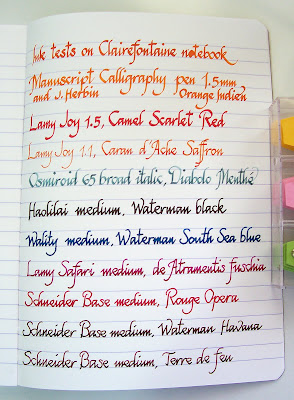 Ink tests on Clairefontaine notebook
Manuscript Calligraphy pen 1,5mm
and J. Herbin Orange Indien
Lamy Joy 1.5, Camel Scarlet Red
Lamy Joy 1.1, Caran d'Ache Saffron
Osmiroid 65 broad italic, Diabolo Menthe
Haolilai medium, Waterman black
Wality medium, Waterman South Sea blue
Lamy Safari medium, de Atramentis fuschia
Schneider Base medium, Rouge Opera
Schneider Base medium, Waterman Havana
Schneider Base medium, Terre de feu